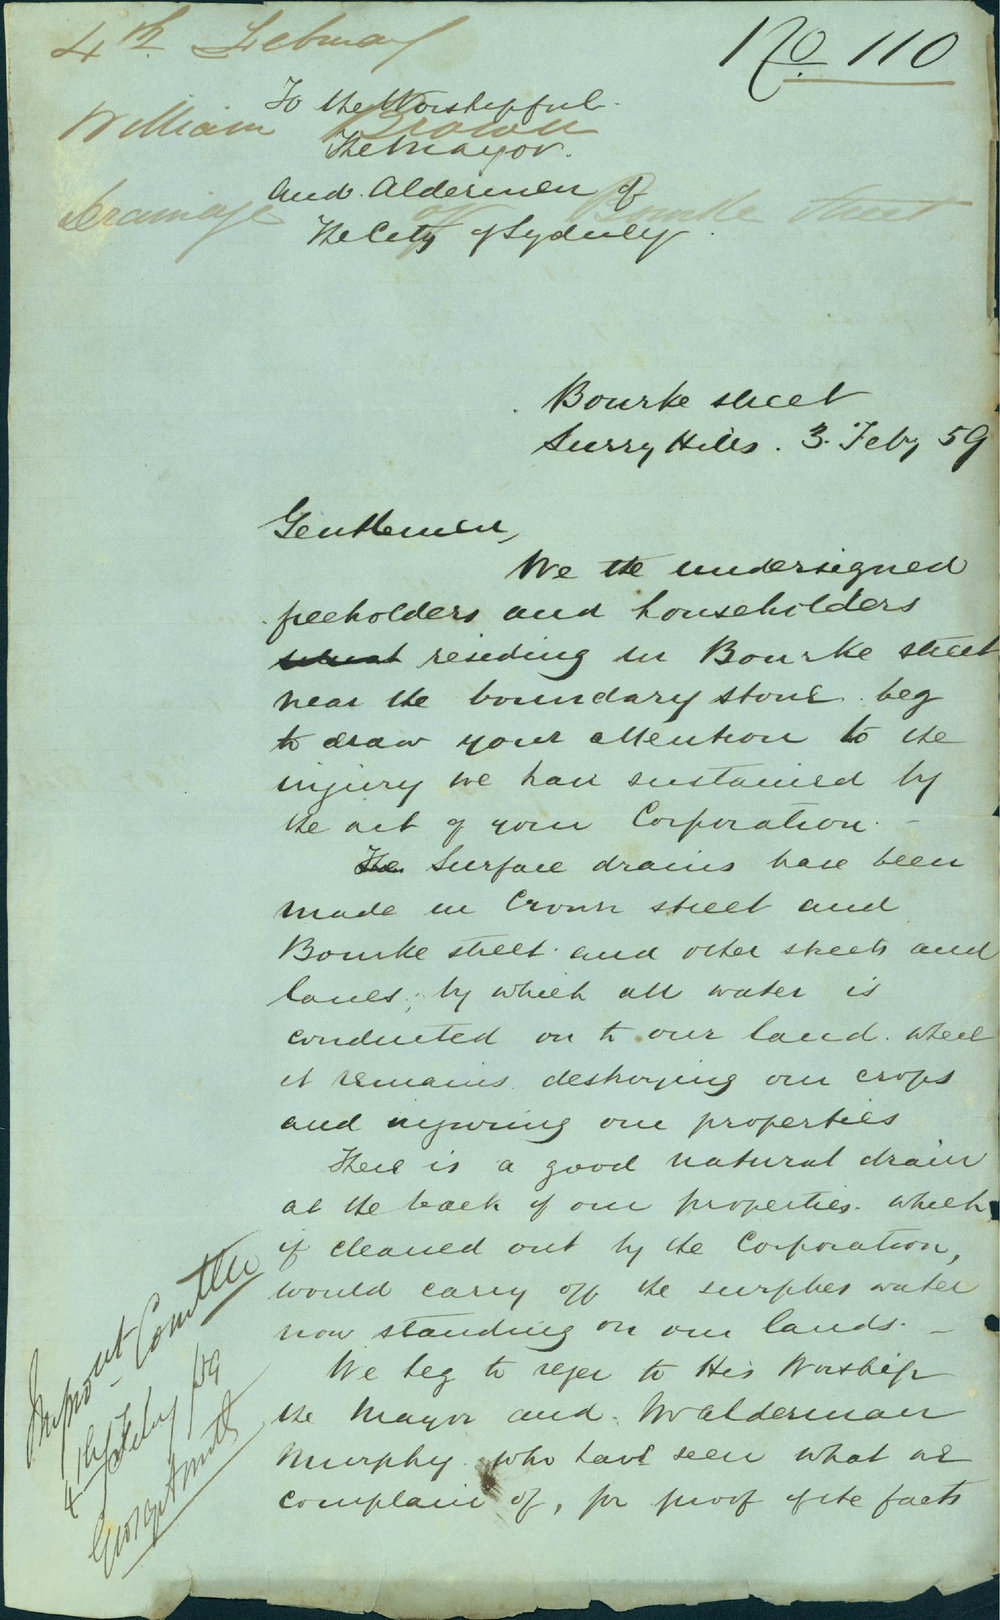 4th February
No 110
William Brown
Drainage of Bourke Street
To the Worshipful
The Mayor.
And Aldermen of
The City of Sydney
Bourke street
Surry Hills. 3 Feby 59
Gentlemen,
We the undersigned
freeholders and householders
residing in Bourke street
near the boundary stone beg
to draw your attention to the
injury we have sustained by
the act of your Corporation. -
The Surface drains have been
made in Crown street and
Bourke street and other streets and
lanes, by which all water is
conducted on to our land. where
it remains destroying our crops
and injuring our properties
There is a good natural drain
at the back of our properties. which
if cleaned out by the Corporation,
would carry off the surplus water
now standing on our lands. -
We beg to refer to His Worship
the Mayor and Alderman
Murphy who have seen what we
complain of, for proof of the facts
Improvt Comttee
4th Feby /59
George Smith